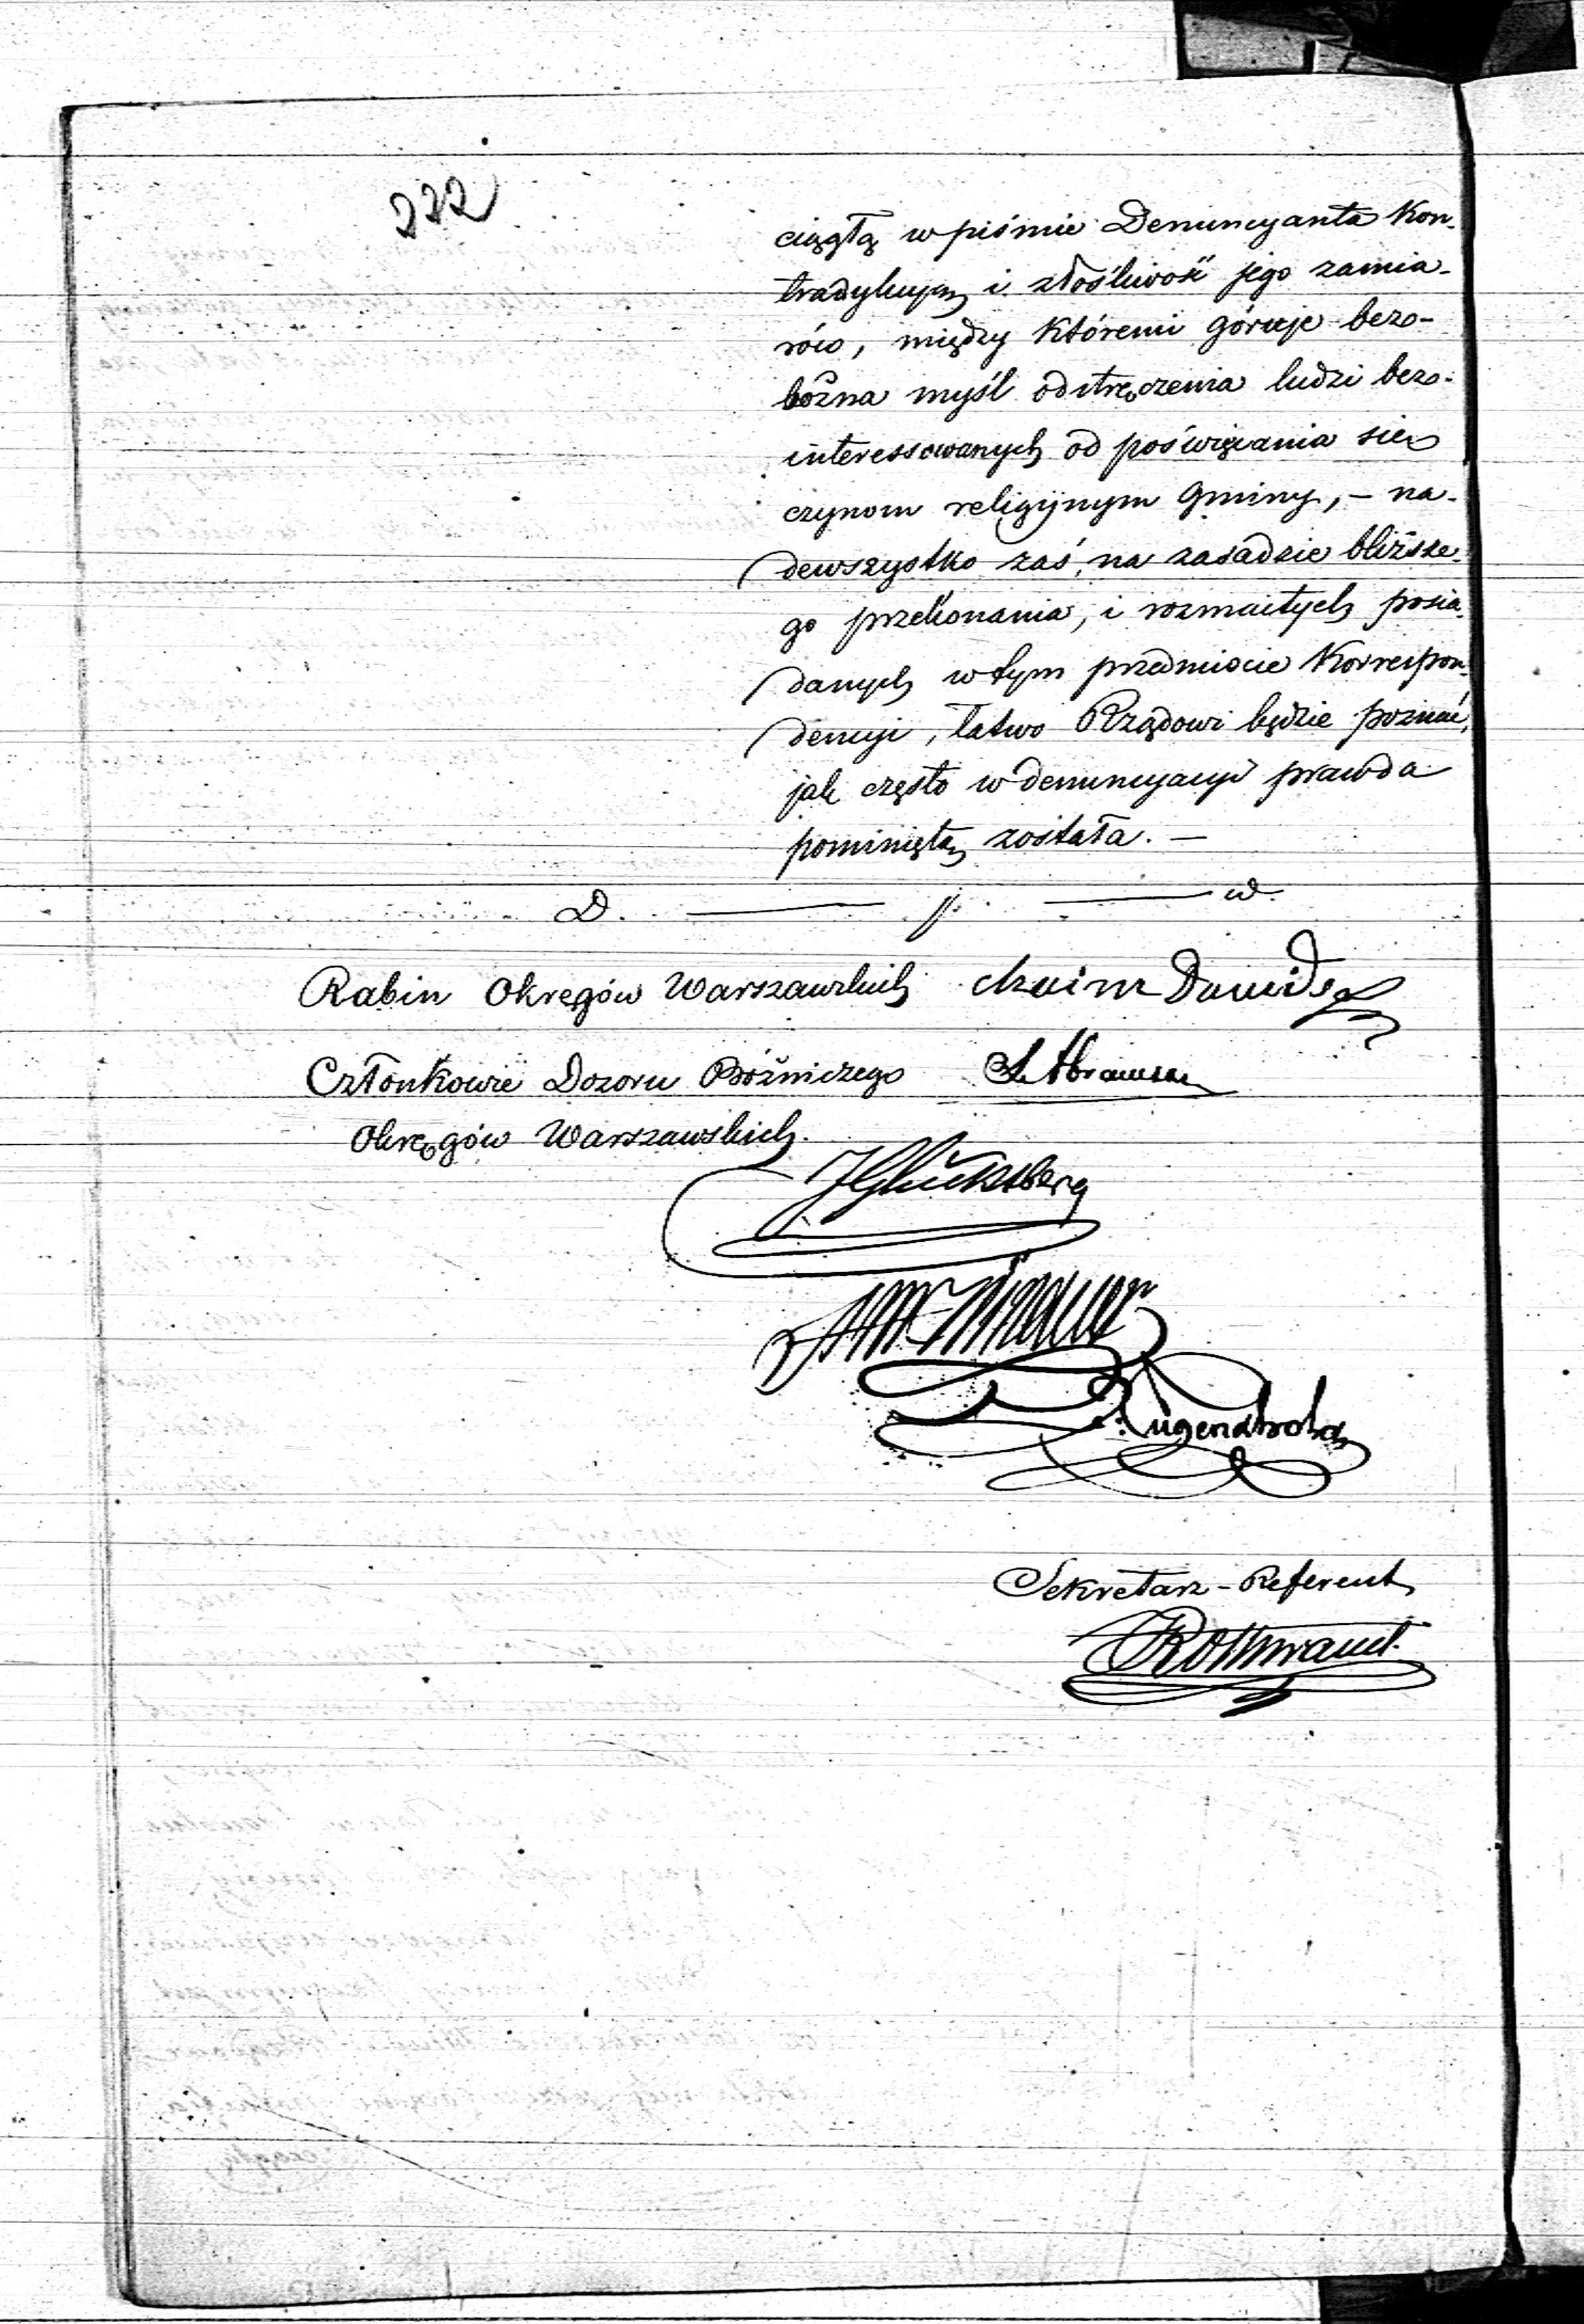 222
ciągłą w piśmie Denuncyanta Kon-
tradykcyą i złośliwość jego zamia-
rów, między któremi góruje bezo-
bożna myśl odstręczenia ludzi bezo-
interessowanych od poświęcania się
czynom religijnym Gminy, – na-
dewszystko zaś, na zasadzie bliższe-
go przekonania, i rozmaitych posia-
danych w tym przedmiocie Korrespon-
dencyi, łatwo Rządowi będzie poznać,
jak często w denuncyacyi prawda
pominiętą została. –
D. — p. — w.
Rabin Okręgów Warszawskich Chaim Dawids
Członkowie Dozoru Bóżniczego
Okręgów Warszawskich.
J Glücksberg
Winawer
J. Tugendhold
Sekretarz – Referent
Rothwand.